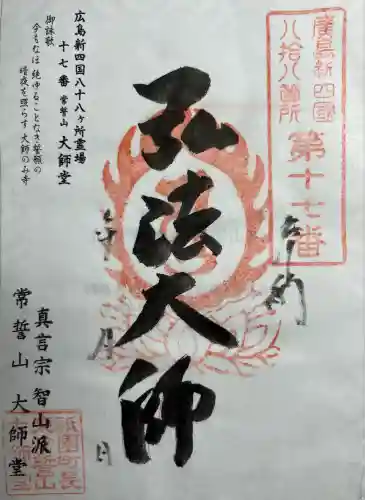 廣島新四國
八拾八箇所
第十七番
奉納
弘法大師
年 月 日
広島新四国八十八ヶ所霊場
十七番 常誓山 大師堂
御詠歌
今もなほ 絶ゆることなき誓願の
暗夜を照らす 大師のみ寺
真言宗 智山派
常誓山 大師堂